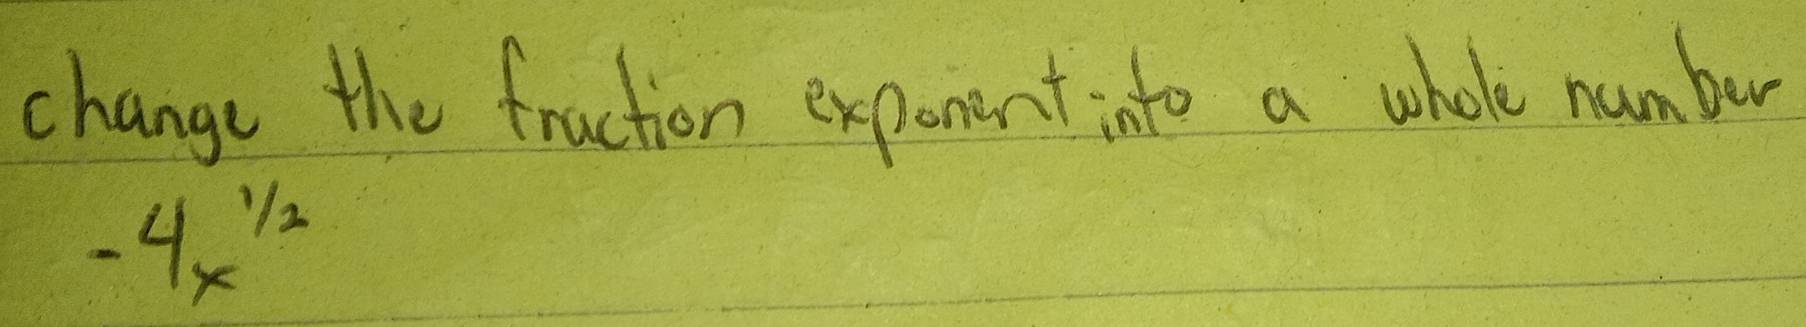 change the fraction exponent into a whole number
-4x^1/2